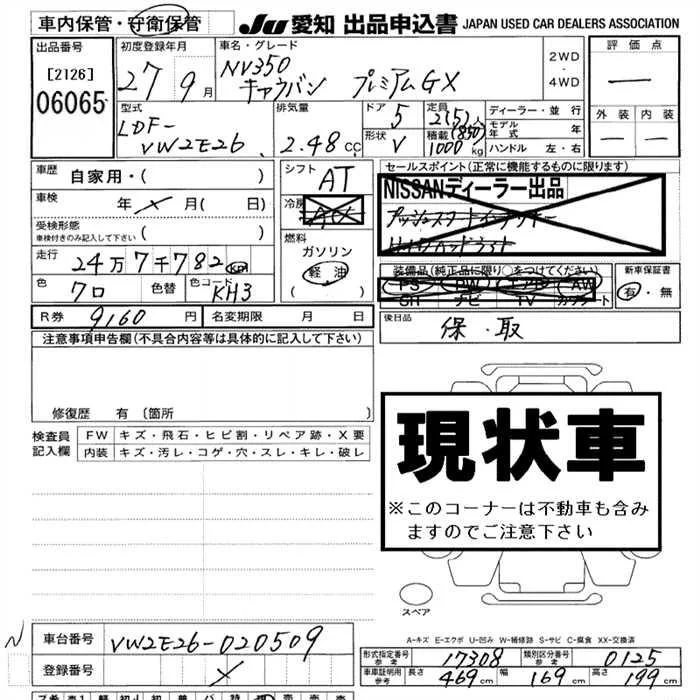 車内保管・守衛保管 JU 愛知 出品申込書 JAPAN USED CAR DEALERS ASSOCIATION
出品番号 初度登録年月 車名・グレード 2WD 評価点
[2126] 27 9月 NV350 キャラバン プレミアムGX ・ 4WD —
06065 型式 排気量 ドア 定員 ディーラー・並行 外装 内装
LDF- 5 2(5)人 モデル年式 年
VW2E26 2.48cc 形状 V 積載 (850) 1000kg ハンドル 左・右 — —
車歴 自家用・( ) シフト AT セールスポイント(正常に機能するものに限ります)
NISSANディーラー出品
車検 年 × 月( 日) 冷房 AAC プッシュスタート インテリキー
受検形態
車検付きのみ記入して下さい ( ) 燃料
ガソリン
走行 24万7千782 km 軽油 装備品(純正品に限り○をつけてください) 新車保証書
PS PW エアB AW 有・無
色 クロ 色替 色コード KH3 ( ) SR ナビ TV カワシート
R券 9160 円 名変期限 月 日 後日品 保・取
注意事項申告欄(不具合内容等は具体的に記入して下さい)
修復歴 有 〔箇所
現状車
※このコーナーは不動車も含み
ますのでご注意下さい
検査員 FW キズ・飛石・ヒビ割・リペア跡・X要
記入欄 内装 キズ・汚レ・コゲ・穴・スレ・キレ・破レ
スペア
A-キズ E-エクボ U-凹み W-補修跡 S-サビ C-腐食 XX-交換済
N 車台番号 VW2E26-020509
登録番号 ×
形式指定番号 参考 17308 類別区分番号 参考 0125
車庫証明用 参考 長さ 469cm 幅 169cm 高さ 199cm